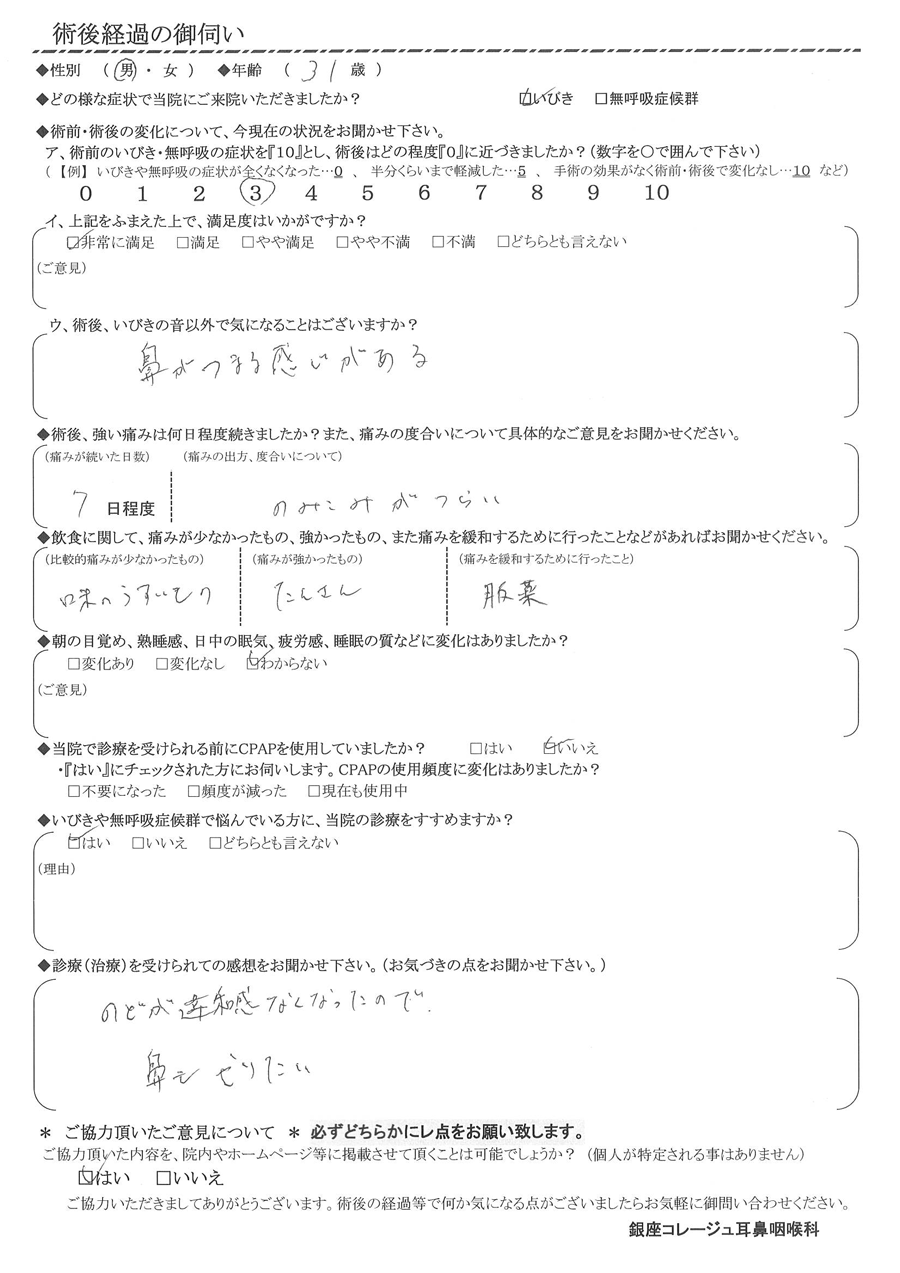 術後経過の御伺い
◆性別 （ 男 ・ 女 ） ◆年齢 （ 31 歳 ）
◆どの様な症状で当院にご来院いただきましたか？ ☑いびき □無呼吸症候群
◆術前・術後の変化について、今現在の状況をお聞かせ下さい。
ア、術前のいびき・無呼吸の症状を『10』とし、術後はどの程度『0』に近づきましたか？（数字を〇で囲んで下さい）
（ 【例】 いびきや無呼吸の症状が全くなくなった…0 、 半分くらいまで軽減した…5 、 手術の効果がなく術前・術後で変化なし…10 など）
0 1 2 3 4 5 6 7 8 9 10
イ、上記をふまえた上で、満足度はいかがですか？
☑非常に満足 □満足 □やや満足 □やや不満 □不満 □どちらとも言えない
（ご意見）
ウ、術後、いびきの音以外で気になることはございますか？
鼻がつまる感じがある
◆術後、強い痛みは何日程度続きましたか？また、痛みの度合いについて具体的なご意見をお聞かせください。
（痛みが続いた日数） （痛みの出方、度合いについて）
7 日程度 のみこみがつらい
◆飲食に関して、痛みが少なかったもの、強かったもの、また痛みを緩和するために行ったことなどがあればお聞かせください。
（比較的痛みが少なかったもの） （痛みが強かったもの） （痛みを緩和するために行ったこと）
味のうすいもの たんさん 服薬
◆朝の目覚め、熟睡感、日中の眠気、疲労感、睡眠の質などに変化はありましたか？
□変化あり □変化なし ☑わからない
（ご意見）
◆当院で診療を受けられる前にCPAPを使用していましたか？ □はい ☑いいえ
・『はい』にチェックされた方にお伺いします。CPAPの使用頻度に変化はありましたか？
□不要になった □頻度が減った □現在も使用中
◆いびきや無呼吸症候群で悩んでいる方に、当院の診療をすすめますか？
☑はい □いいえ □どちらとも言えない
（理由）
◆診療（治療）を受けられての感想をお聞かせ下さい。（お気づきの点をお聞かせ下さい。）
のどが違和感なくなったので、
鼻もやりたい
＊ ご協力頂いたご意見について ＊ 必ずどちらかにレ点をお願い致します。
ご協力頂いた内容を、院内やホームページ等に掲載させて頂くことは可能でしょうか？ （個人が特定される事はありません）
☑はい □いいえ
ご協力いただきましてありがとうございます。術後の経過等で何か気になる点がございましたらお気軽に御問い合わせください。
銀座コレージュ耳鼻咽喉科